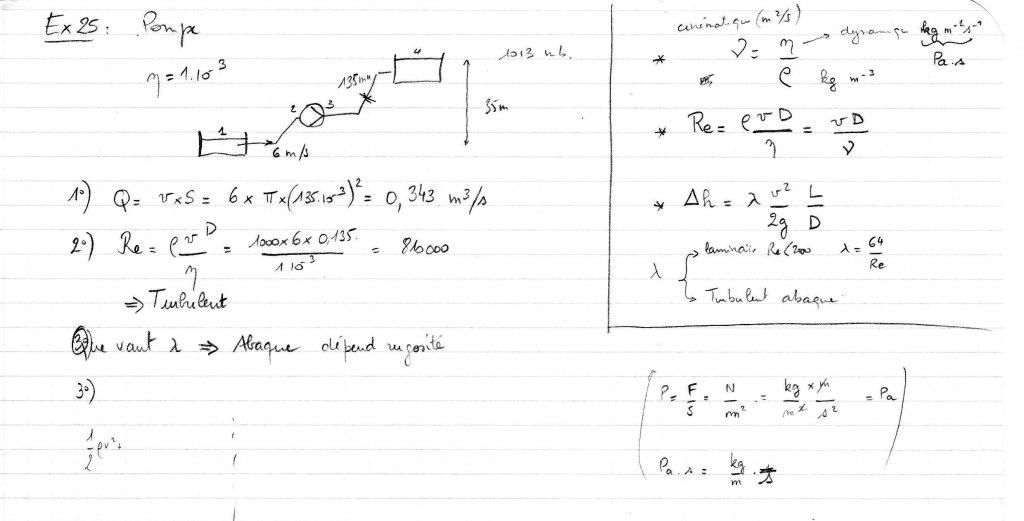 Ex 25 : Pompe
η = 1.10⁻³
1
6 m/s
2
3
135mm
4
1013 mb.
35m
1°) Q = v×S = 6 × π×(135.10⁻³)² = 0,343 m³/s
2°) Re = ρ v D / η = 1000×6×0,135. / 1 10⁻³ = 810000
⇒ Turbulent
Que vaut λ ⇒ Abaque dépend rugosité
3°)
1/2 ρv²+
cinématique (m²/s)
* ν = η / ρ → dynamique kg m⁻¹s⁻¹
Pa.s
kg m⁻³
* Re = ρ v D / η = v D / ν
* Δh = λ v²/2g L/D
λ
laminaire Re<2000 λ = 64/Re
Turbulent abaque
P = F/S = N/m² = kg × m / m² s² = Pa
Pa.s = kg/m . s